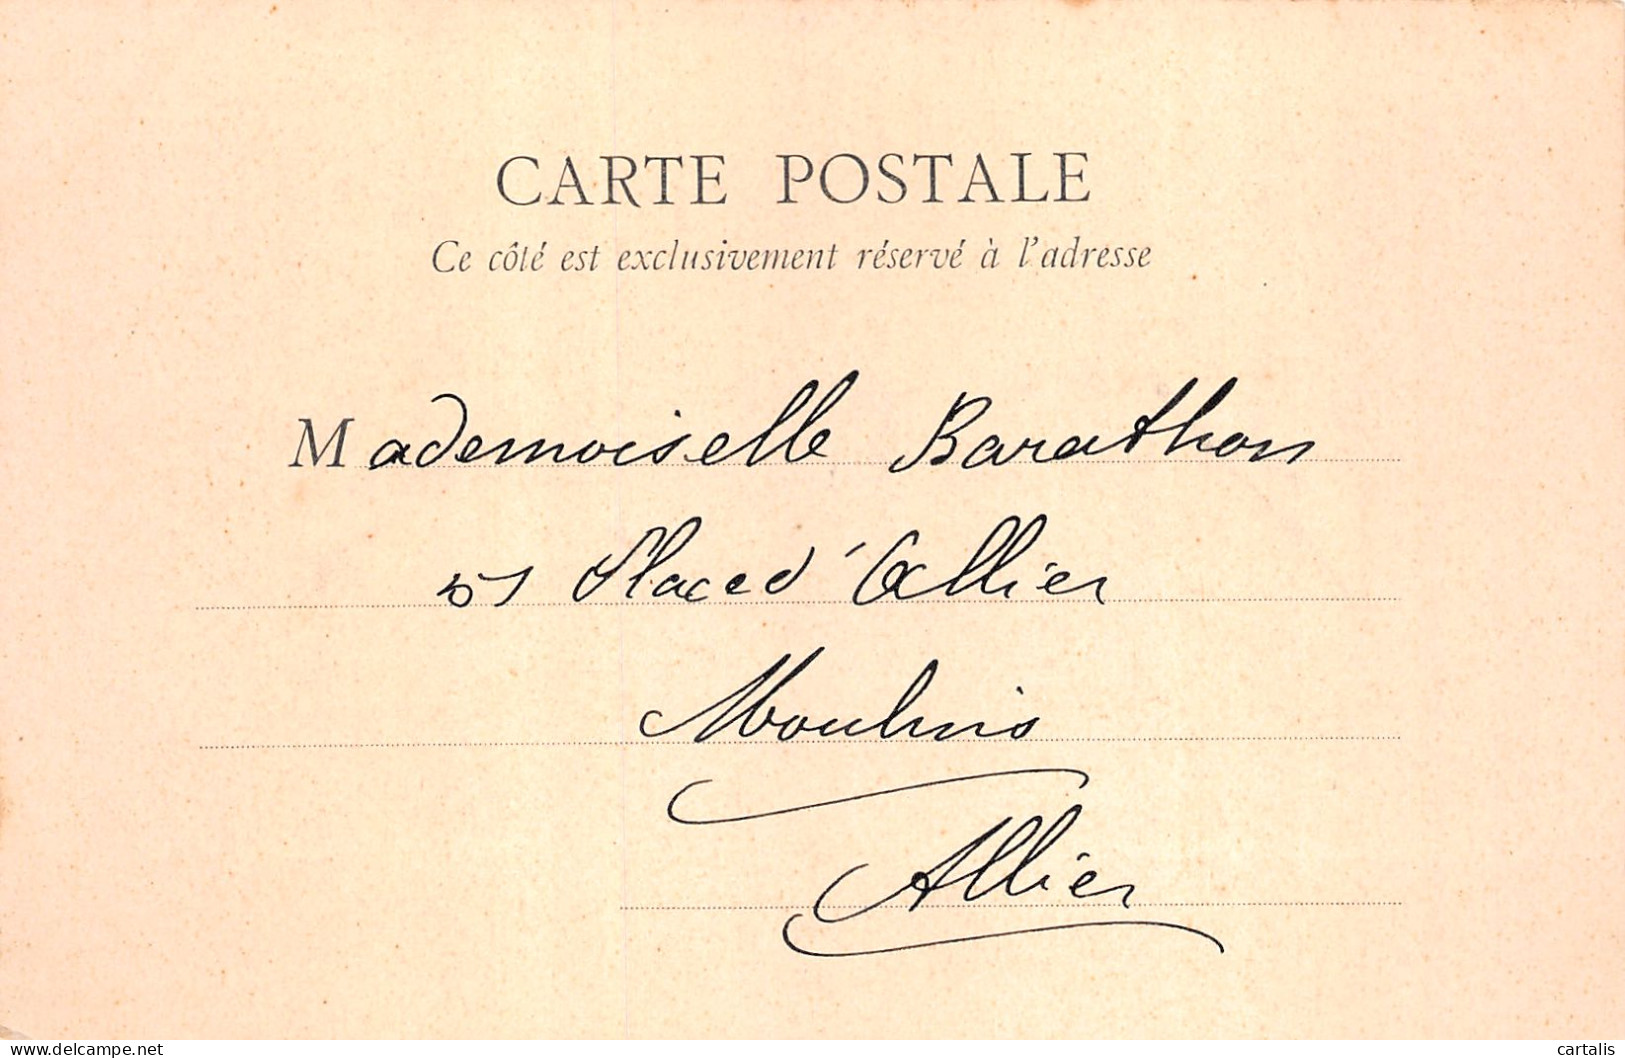 CARTE POSTALE
Ce côté est exclusivement réservé à l'adresse
Mademoiselle Barathon
51 Place d'Allier
Moulins
Allier
www.delcampe.net
cartalis